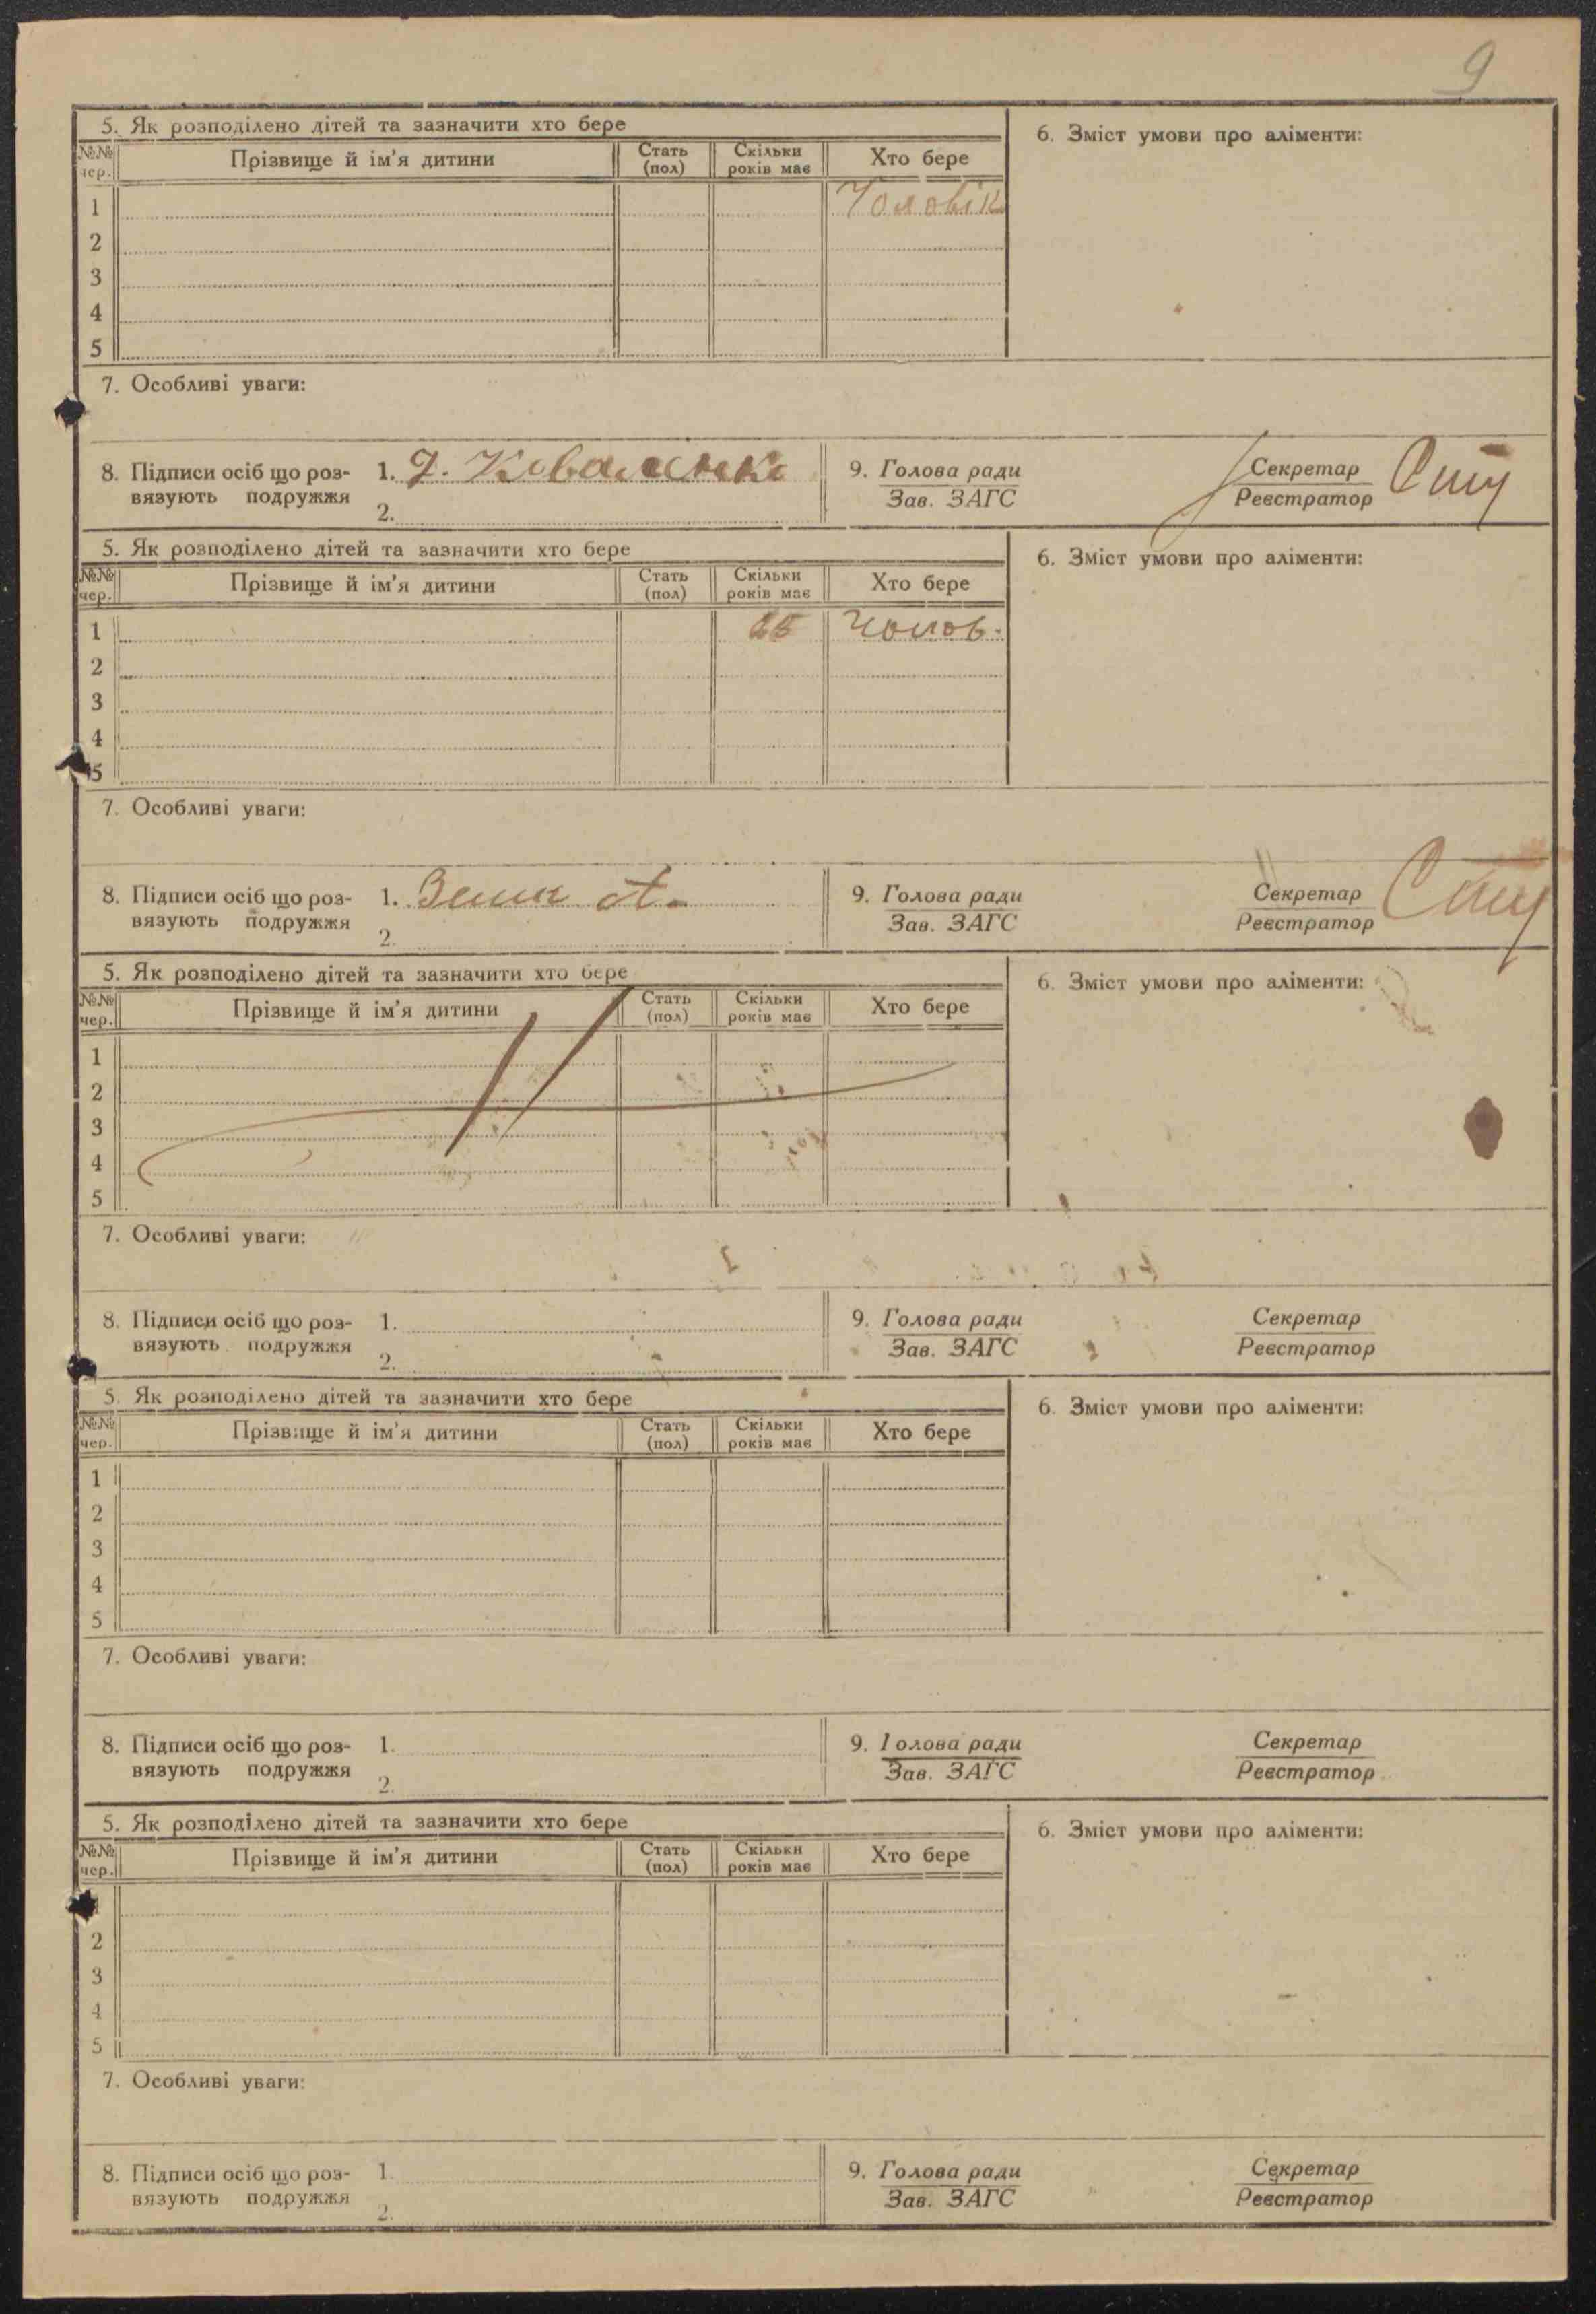 9
5. Як розподілено дітей та зазначити хто бере
6. Зміст умови про аліменти:
№№ чер. Прізвище й ім'я дитини Стать (пол) Скільки років має Хто бере
1 Чоловік
2
3
4
5
7. Особливі уваги:
8. Підписи осіб що роз- 1. Коваленко 9. Голова ради Секретар
вязують подружжя 2. Зав. ЗАГС Реєстратор
5. Як розподілено дітей та зазначити хто бере
6. Зміст умови про аліменти:
№№ чер. Прізвище й ім'я дитини Стать (пол) Скільки років має Хто бере
1 Чолов.
2
3
4
5
7. Особливі уваги:
8. Підписи осіб що роз- 1. 9. Голова ради Секретар
вязують подружжя 2. Зав. ЗАГС Реєстратор
5. Як розподілено дітей та зазначити хто бере
6. Зміст умови про аліменти:
№№ чер. Прізвище й ім'я дитини Стать (пол) Скільки років має Хто бере
1
2
3
4
5
7. Особливі уваги:
8. Підписи осіб що роз- 1. 9. Голова ради Секретар
вязують подружжя 2. Зав. ЗАГС Реєстратор
5. Як розподілено дітей та зазначити хто бере
6. Зміст умови про аліменти:
№№ чер. Прізвище й ім'я дитини Стать (пол) Скільки років має Хто бере
1
2
3
4
5
7. Особливі уваги:
8. Підписи осіб що роз- 1. 9. Голова ради Секретар
вязують подружжя 2. Зав. ЗАГС Реєстратор
5. Як розподілено дітей та зазначити хто бере
6. Зміст умови про аліменти:
№№ чер. Прізвище й ім'я дитини Стать (пол) Скільки років має Хто бере
2
3
4
5
7. Особливі уваги:
8. Підписи осіб що роз- 1. 9. Голова ради Секретар
вязують подружжя 2. Зав. ЗАГС Реєстратор